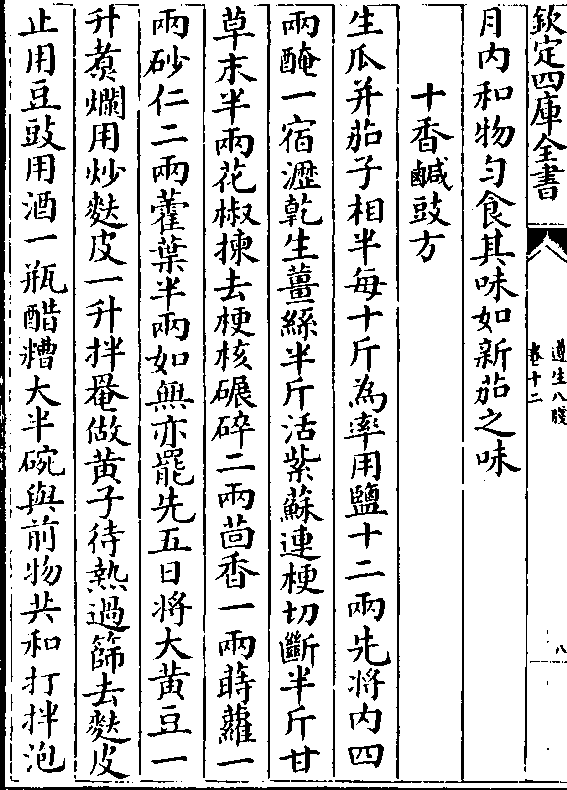 欽定四庫全書
遵生八牋
卷十二
八
月内和物匀食其味如新茄之味
十香鹹豉方
生瓜并茄子相半每十斤為率用鹽十二兩先將内四
兩醃一宿瀝乾生薑絲半斤活紫蘇連梗切斷半斤甘
草末半兩花椒揀去梗核碾碎二兩茴香一兩蒔蘿一
兩砂仁二兩藿葉半兩如無亦罷先五日將大黄豆一
升煑爛用炒麩皮一升拌罨做黄子待熱過篩去麩皮
止用豆豉用酒一瓶醋糟大半碗與前物共和打拌泡